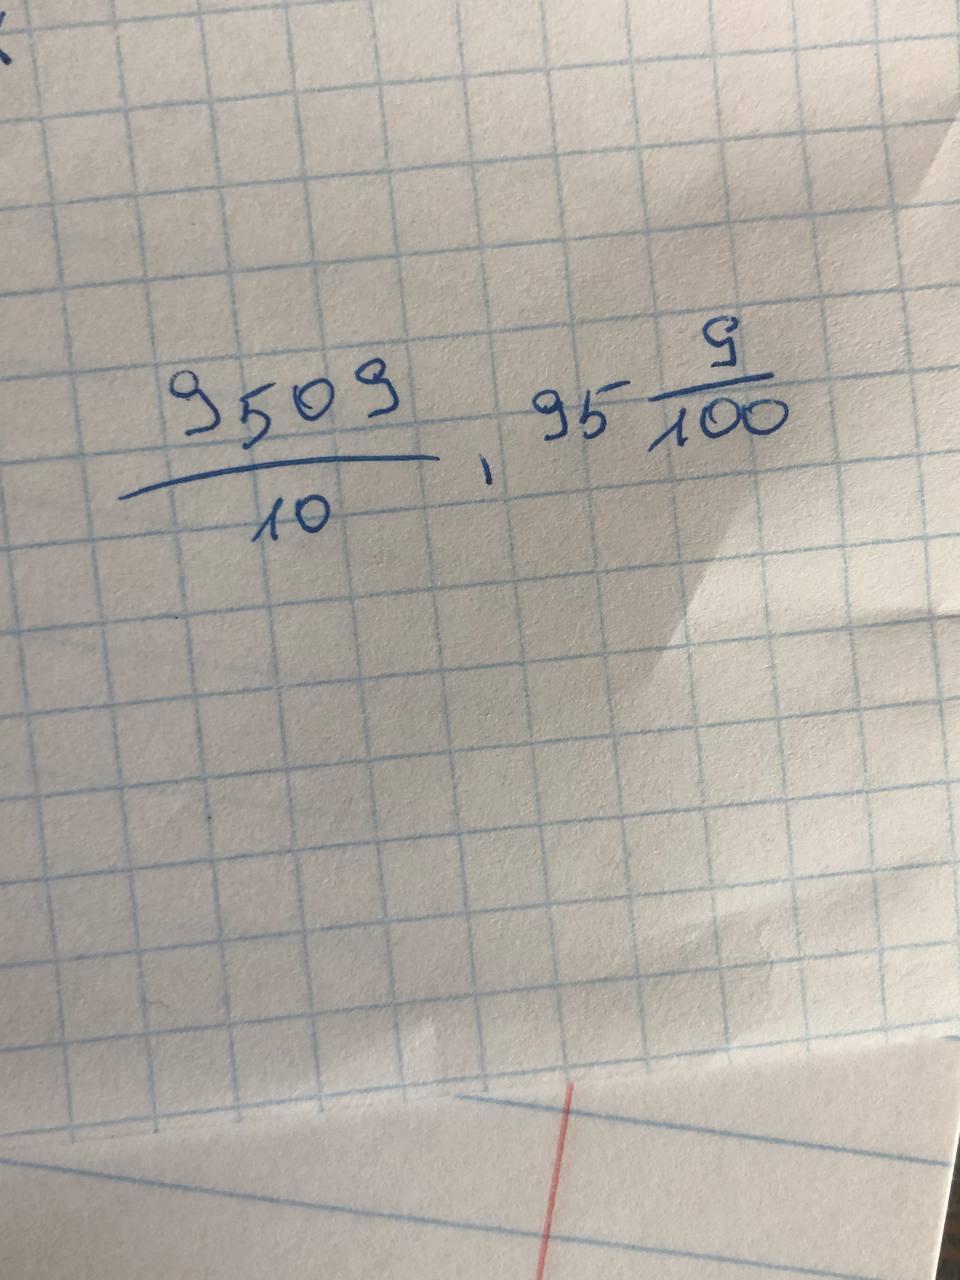 9509/10, 95 9/100